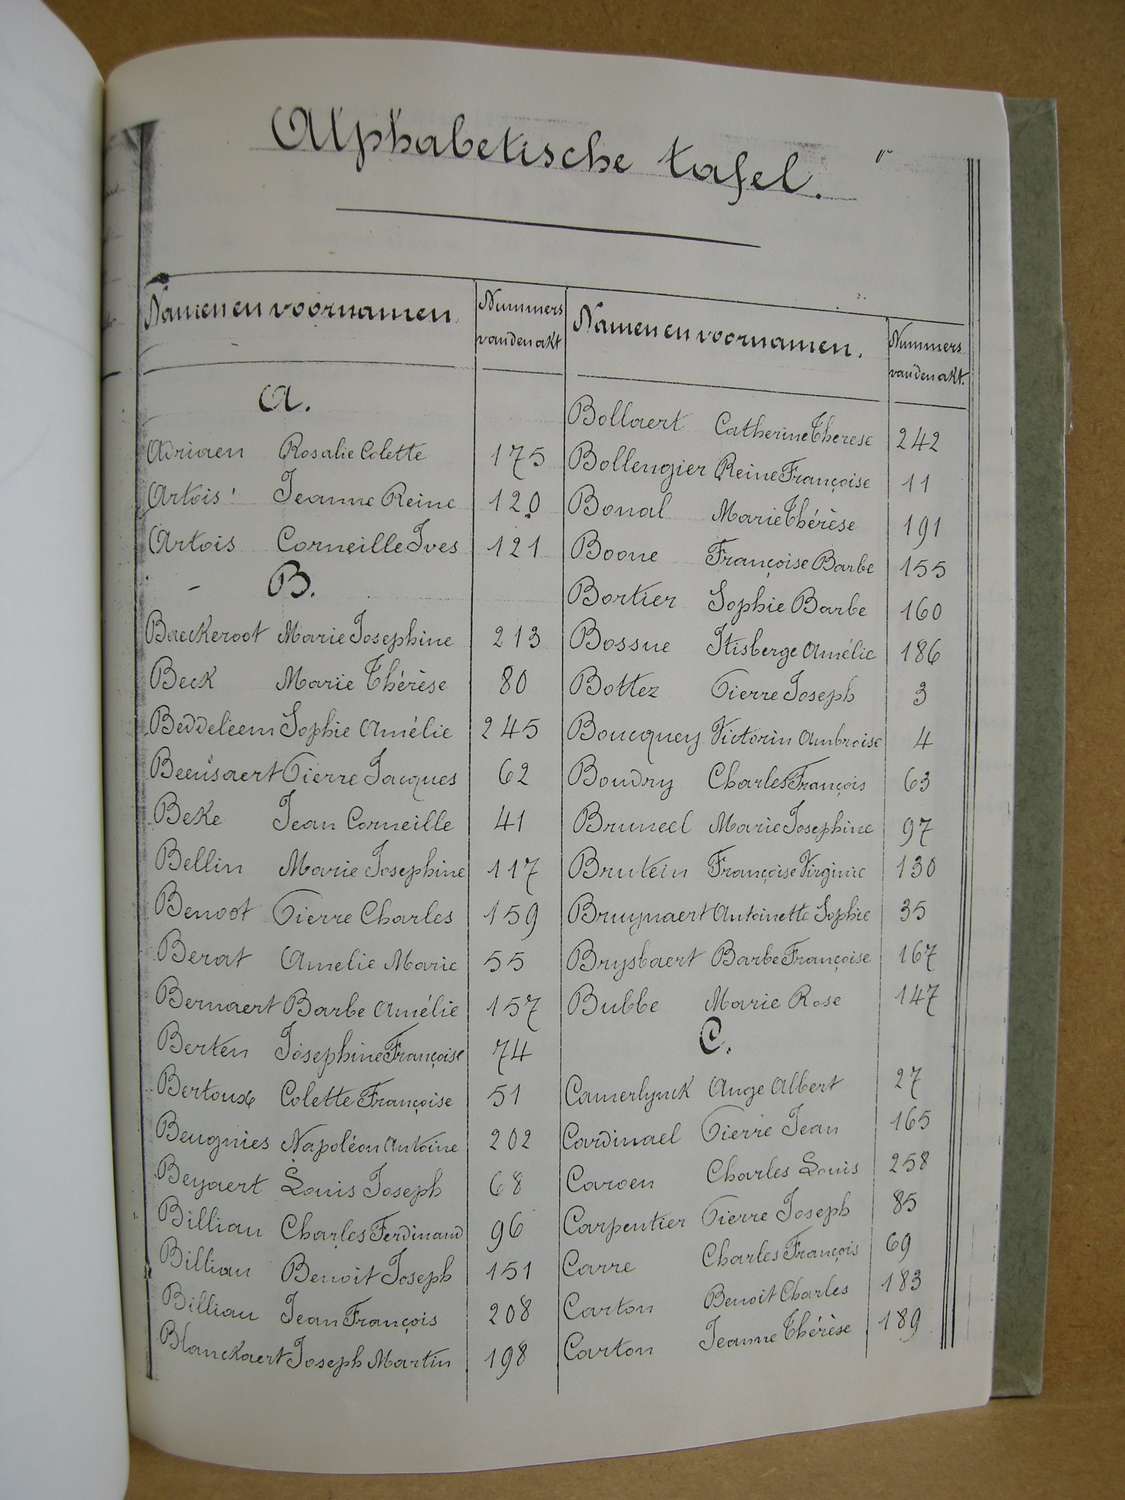 Alphabetische tafel.
Namen en voornamen
Nummers van den akt
A.
Adriaen Rosalie Colette 175
Artois Jeanne Reine 120
Artois Corneille Ives 121
B.
Baeckeroot Marie Josephine 213
Beck Marie Thérèse 80
Beddeleem Sophie Amélie 245
Beeusaert Pierre Jacques 62
Beke Jean Corneille 41
Bellin Marie Josephine 117
Benoot Pierre Charles 159
Berat Amelie Marie 55
Bernaert Barbe Amélie 157
Berten Josephine Françoise 74
Bertoux Colette Françoise 51
Beugnies Napoléon Antoine 202
Beyaert Louis Joseph 68
Billiau Charles Ferdinand 96
Billiau Benoit Joseph 151
Billiau Jean François 208
Blanckaert Joseph Martin 198
Namen en voornamen.
Nummers van den akt.
Bollaert Catherine Therese 242
Bollengier Reine Françoise 11
Bonal Marie Thérèse 191
Boone Françoise Barbe 155
Bortier Sophie Barbe 160
Bossue Amélie 186
Bottez Pierre Joseph 3
Boucquey Victorin Ambroise 4
Boudry Charles François 63
Bruneel Marie Josephine 97
Brutein Françoise Virginie 130
Bruynaert Antoinette Sophie 35
Brysbaert Barbe Françoise 167
Bubbe Marie Rose 147
C.
Camerlynck Ange Albert 27
Cardinael Pierre Jean 165
Caroen Charles Louis 258
Carpentier Pierre Joseph 85
Carre Charles François 69
Carton Benoit Charles 183
Carton Jeanne Thérèse 189